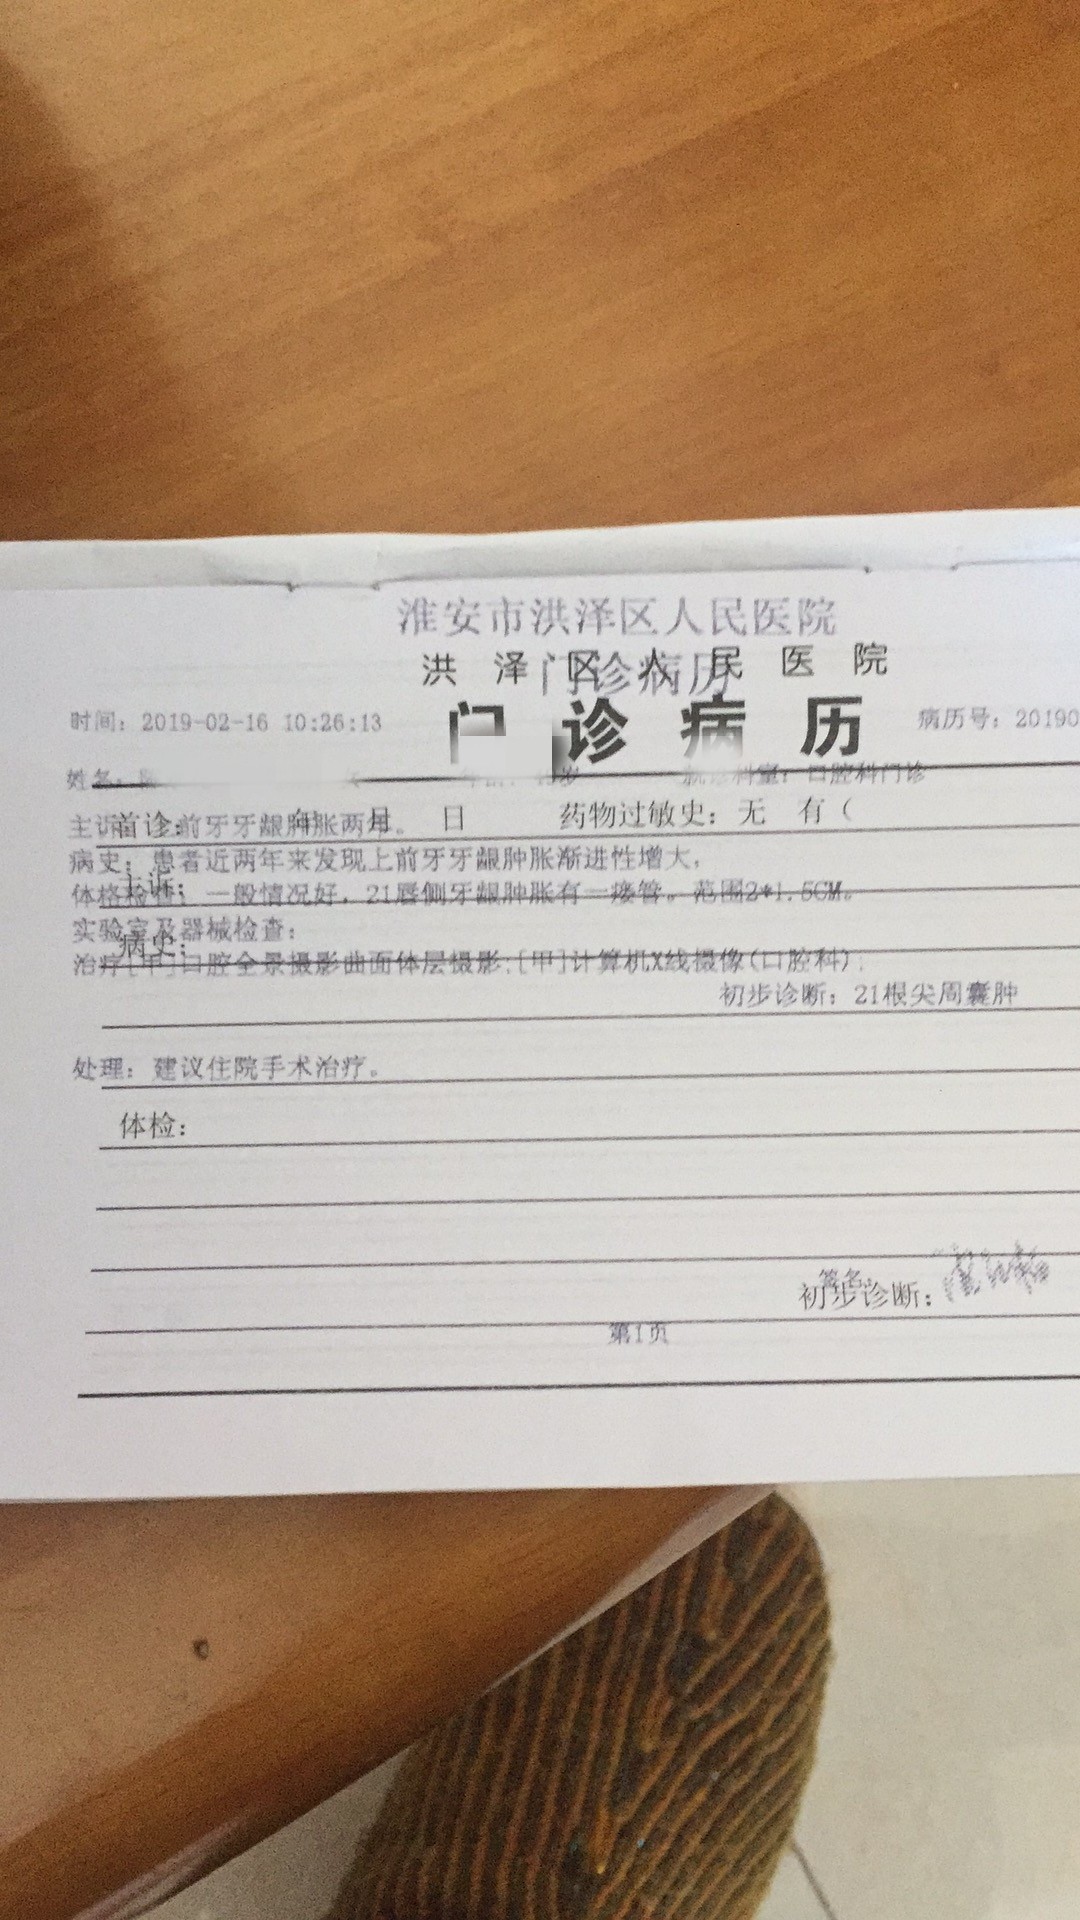 淮安市洪泽区人民医院
洪泽区人民医院
门诊病历
门诊病历
时间：2019-02-16 10:26:13
病历号：20190
姓名：
就诊科室：口腔科门诊
首诊： 年 月 日 药物过敏史：无 有（
主诉：上前牙牙龈肿胀两年。
病史：患者近两年来发现上前牙牙龈肿胀渐进性增大，
主诉：
体格检查：一般情况好，21唇侧牙龈肿胀有一瘘管。范围2*1.5CM。
实验室及器械检查：
病史：
治疗[甲]口腔全景摄影曲面体层摄影;[甲]计算机X线摄像(口腔科);
初步诊断：21根尖周囊肿
处理：建议住院手术治疗。
体检：
签名：
初步诊断：
第1页